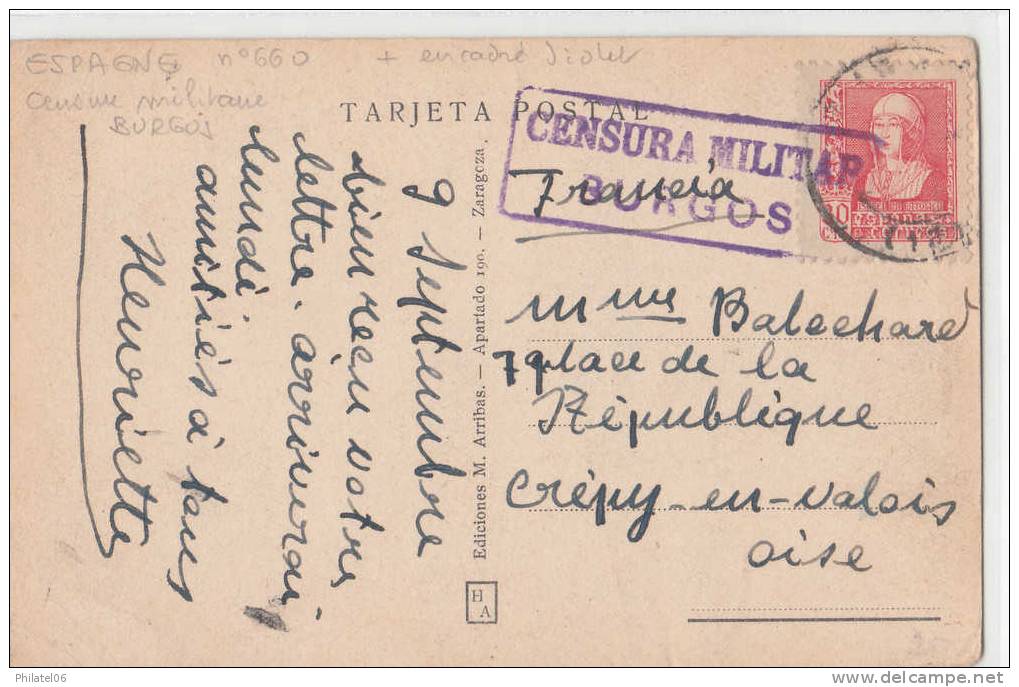 ESPAGNE n°660 + encadré violet
Censure militaire
BURGOS
TARJETA POSTAL
CENSURA MILITAR
BURGOS
Francia
9 Septembre
bien reçu votre
lettre. arriverai
lundi
amitiés à tous
Henriette
Ediciones M. Arribas. — Apartado 190. — Zaragoza.
HA
Mme Balochard
7 place de la
République
Crépy-en-Valois
Oise
25
Philatel06